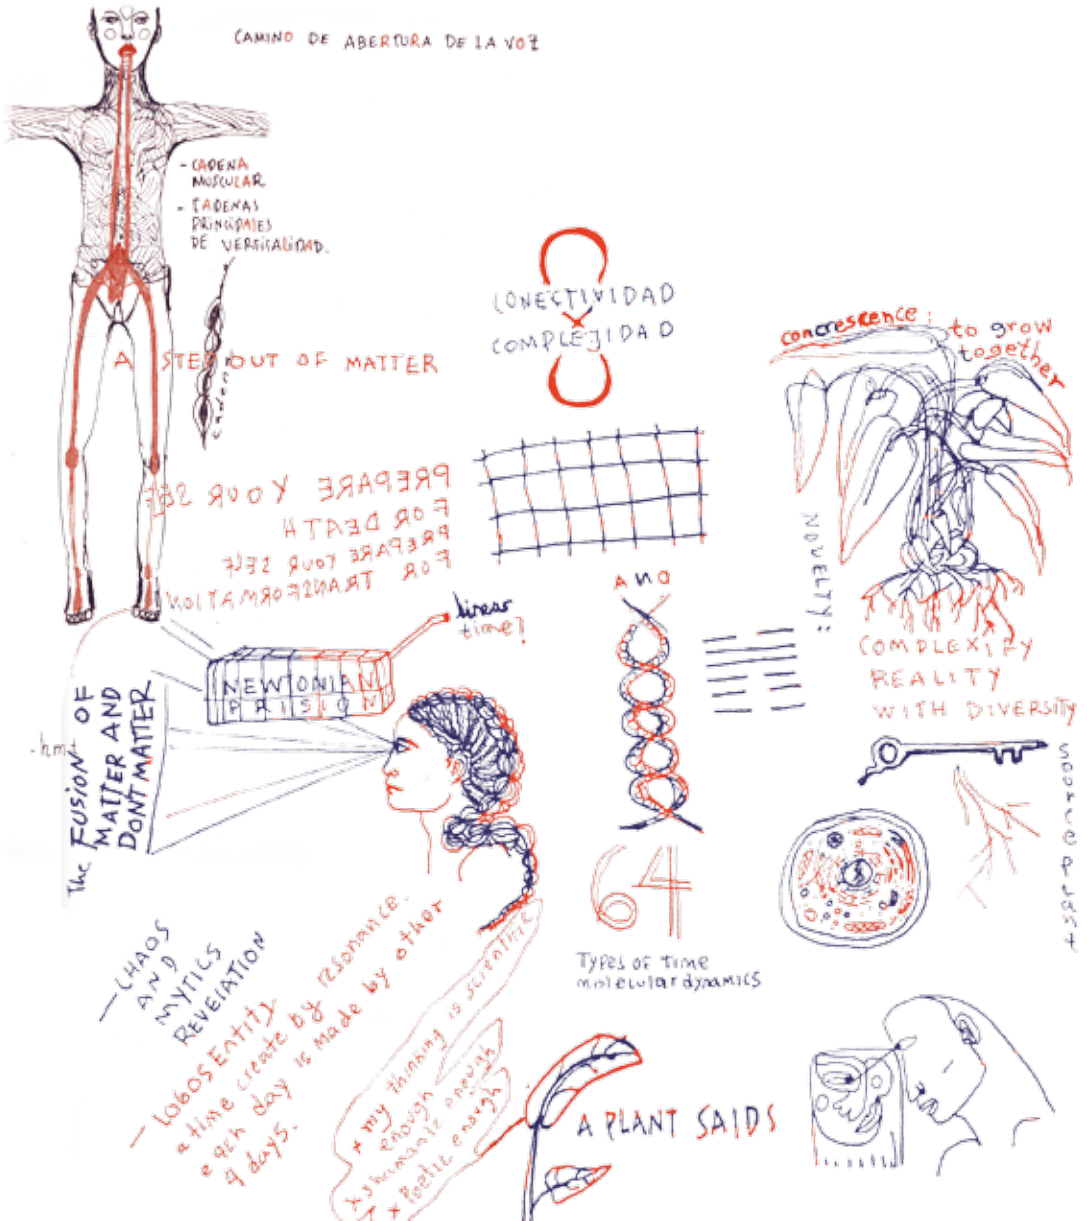 CAMINO DE ABERTURA DE LA VOZ
- CADENA
MUSCULAR
- CADENAS
PRINCIPALES
DE VERTICALIDAD.
cadena
A STEP OUT OF MATTER
CONECTIVIDAD
COMPLEJIDAD
concrescence:
to grow
together
PREPARE YOUR SELF
FOR DEATH
PREPARE YOUR SELF
FOR TRANSFORMATION
linear
time?
NEWTONIAN
PRISION
ANO
NOVELTY:
COMPLEXIFY
REALITY
WITH DIVERSITY
source plant
-hm+
The FUSION OF
MATTER AND
DONT MATTER
64
TYPES OF TIME
molecular dynamics
— CHAOS
AND
MYTICS
REVELATION
— LOGOS Entity.
a time create by resonance.
each day is made by other
9 days.
x my thinking is scientific
enough
x shamanic enough
x Poetic enough
A PLANT SAIDS